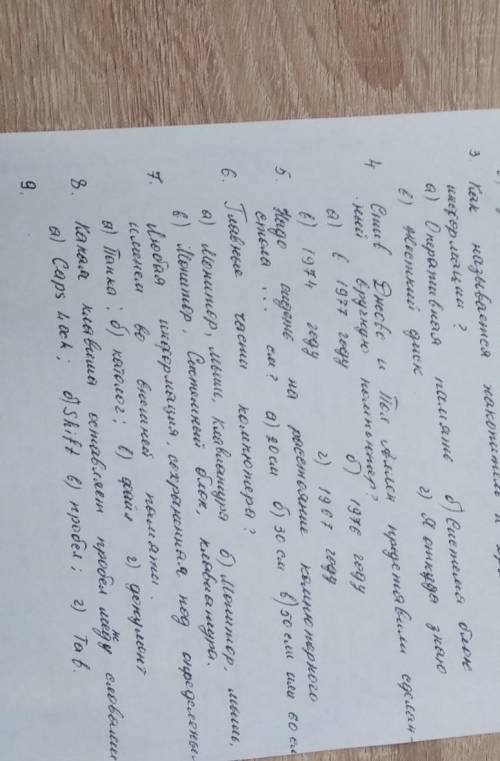 3 Как называется накопитель
информации?
а) Оперативная память б) Системя блок
в) Жесткий диск г) Я откуда знаю
4 Стив Джобс и Пол Аллен представили сделан-
ный вручную компьютер?
а) в 1977 году б) 1976 году
в) 1974 году г) 1967 году
5. Надо сидеть на расстояние компюторного
стола ... см? а) 20см б) 30 см в) 50 см или 60 см
6. Главные части компютера?
а) Монитор, мыши, клавиатура б) Монитор, мышь,
в) Монитор, Системный блок, клавиатура.
7. Любая информация, сохраненная под определены
именем во внешней памяти.
а) Папка; б) каталог; в) файл г) документ
8. Какая клавиша оставляет пробел между словами
а) Caps Lock; б) Shift в) пробел; г) Tab.
9.